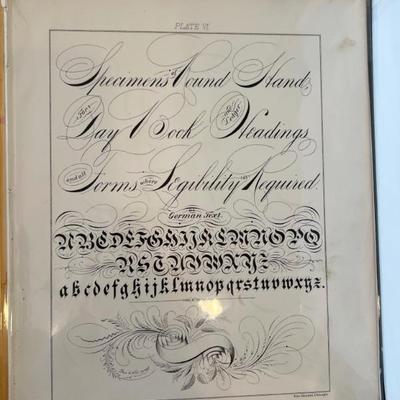 PLATE VI
Specimens of Round Hand,
For Day Book and Ledger Headings,
and all Forms where Legibility is Required.
German Text.
ABCDEFGHIJKLMNOPQ
RSTUVWXYZ
abcdefghijklmnopqrstuvwxyz.